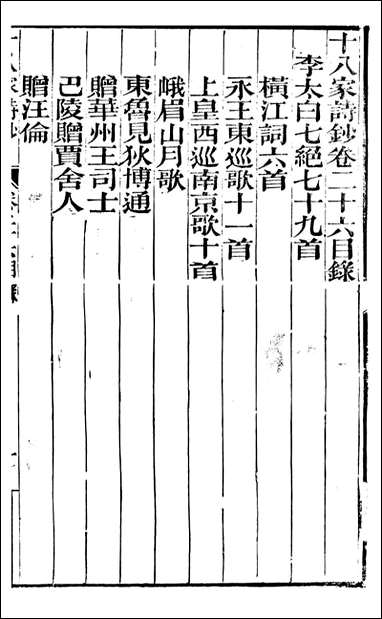 十八家詩鈔卷二十六目錄
李太白七絕七十九首
橫江詞六首
永王東巡歌十一首
上皇西巡南京歌十首
峨眉山月歌
東魯見狄博通
贈華州王司士
巴陵贈賈舍人
贈汪倫